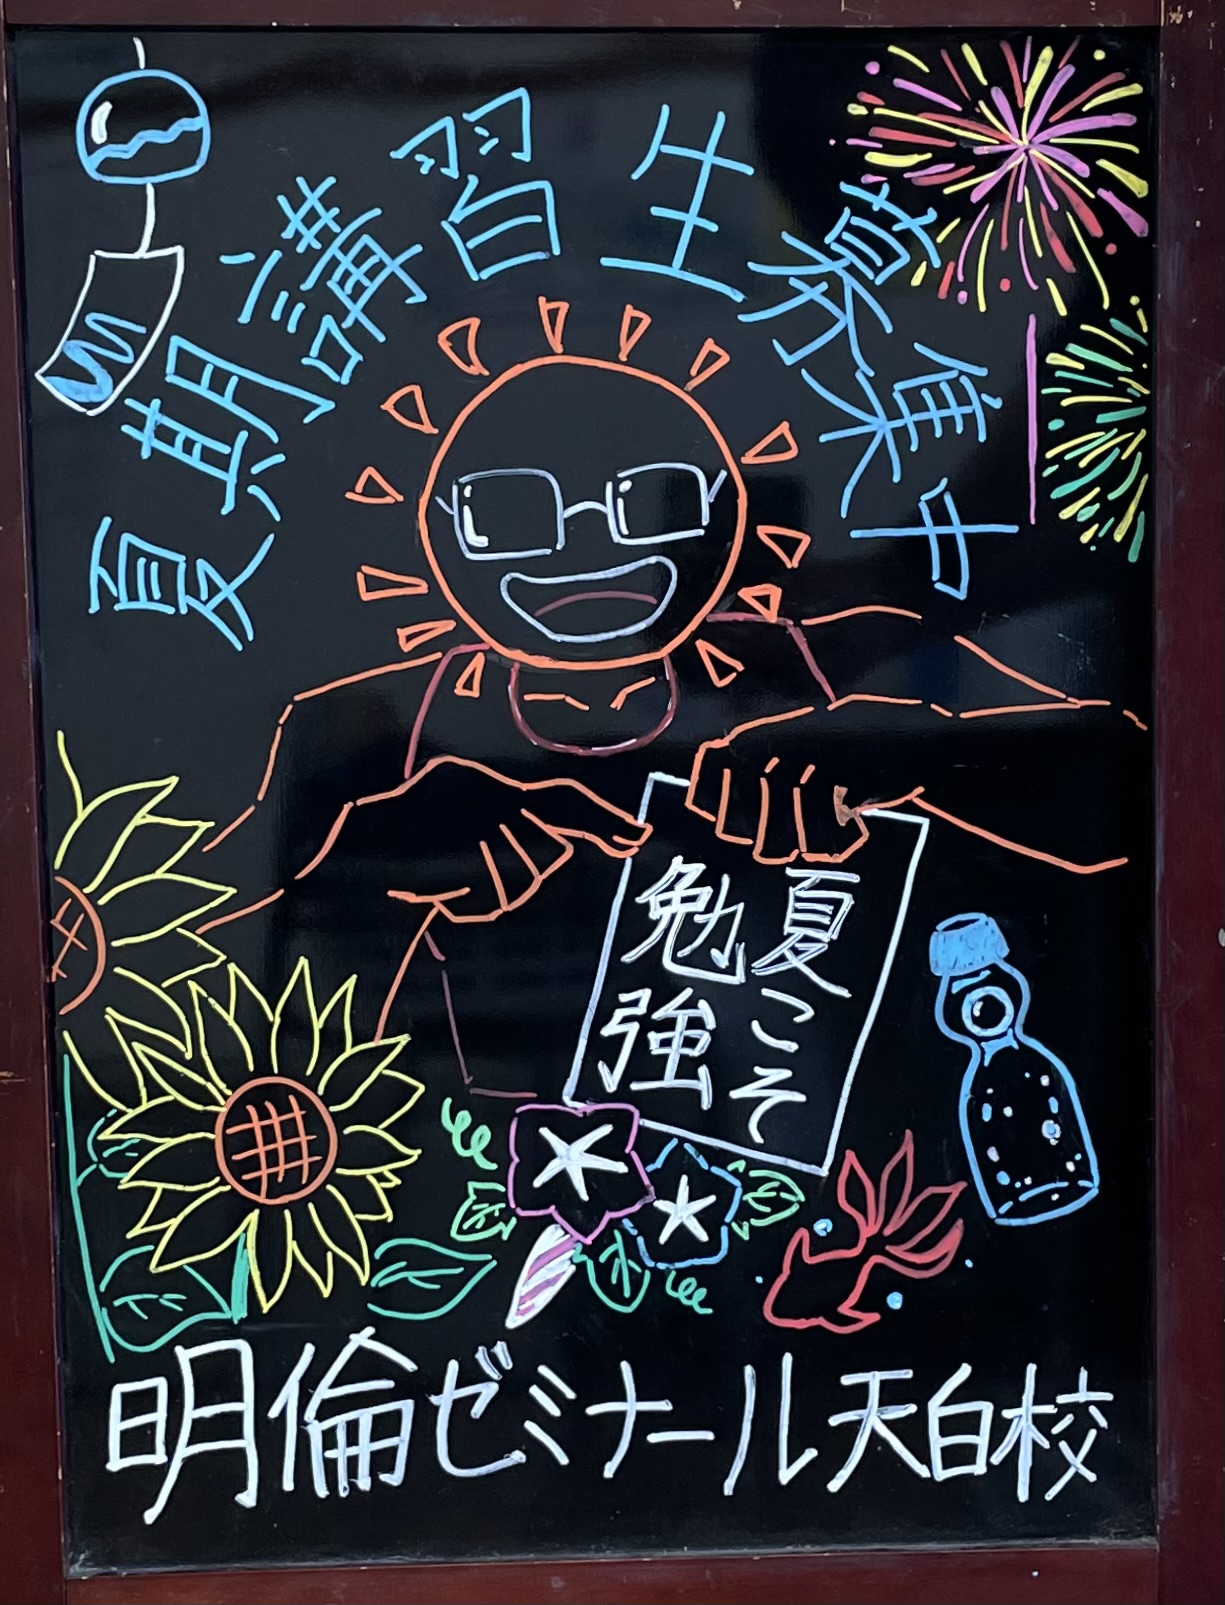 夏期講習生募集中
夏こそ
勉強
明倫ゼミナール天白校